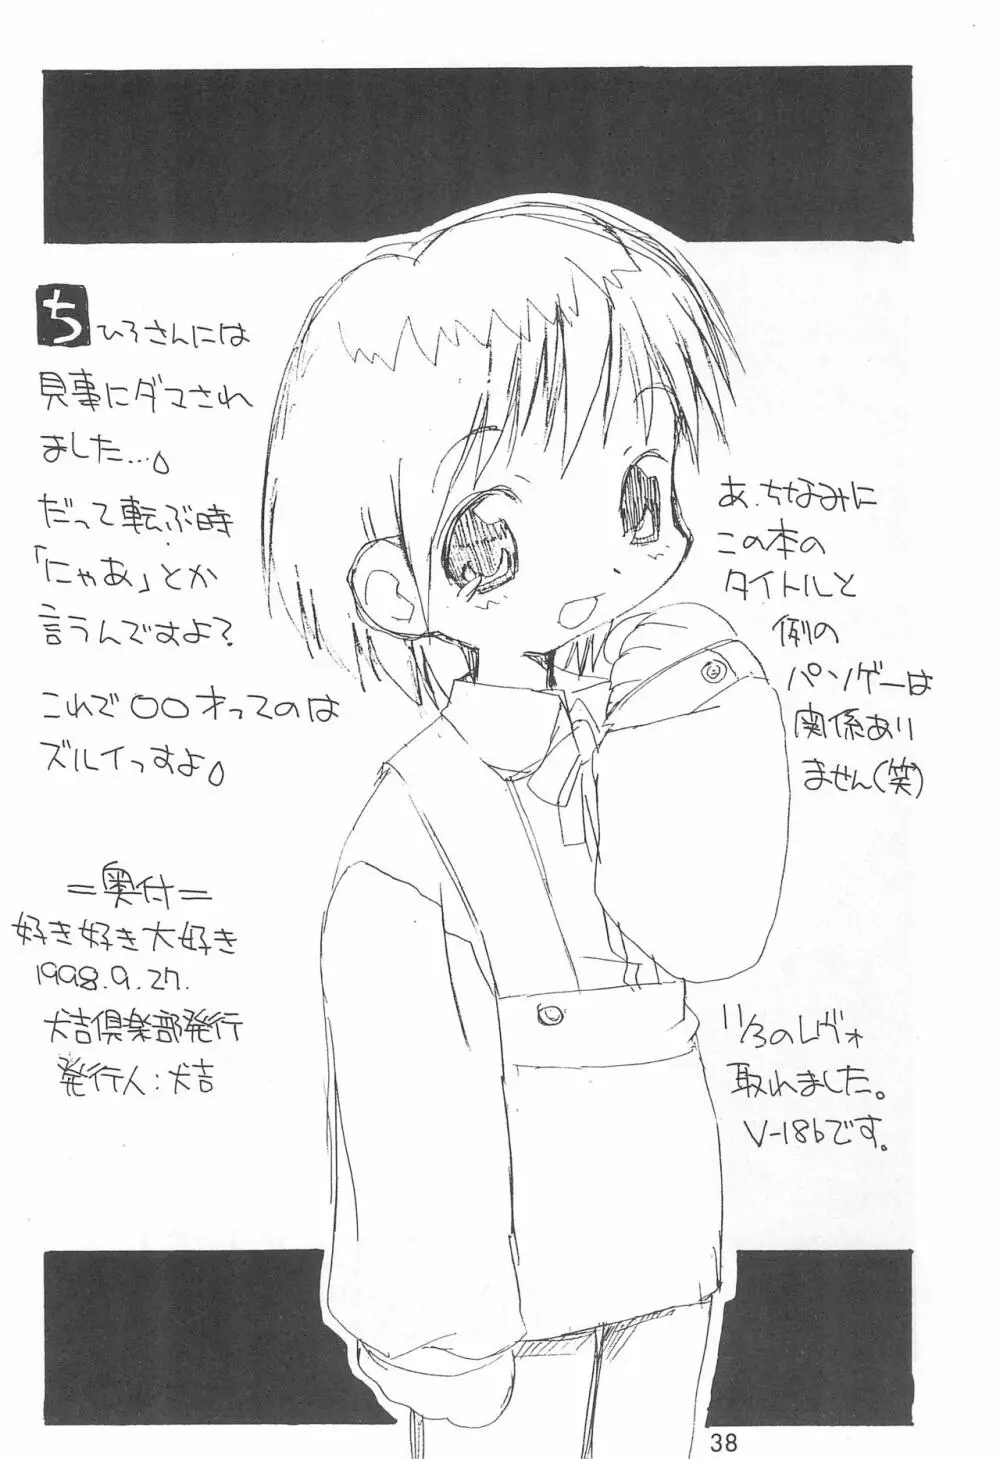 ちひろさんには
見事にダマされ
ました…。
だって転ぶ時
「にゃあ」とか
言うんですよ？
これで〇〇才ってのは
ズルイっすよ。
あ、ちなみに
この本の
タイトルと
例の
パソゲーは
関係あり
ません(笑)
＝奥付＝
好き好き大好き
1998.9.27.
犬吉倶楽部発行
発行人：犬吉
11/3のレヴォ
取れました。
V-18bです。
38